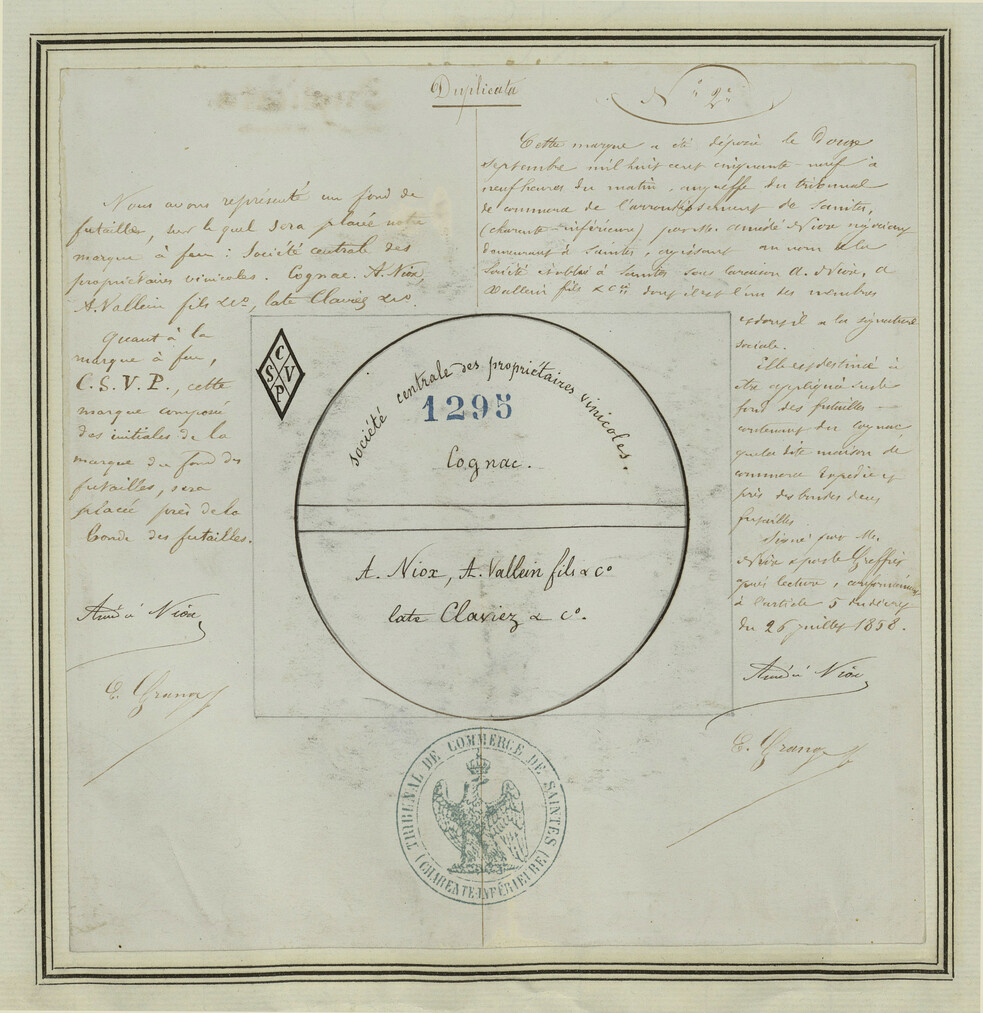 Duplicata
N° 2
Cette marque a été déposée le Douze
septembre mil huit cent cinquante neuf à
neuf heures du matin, au greffe du tribunal
de commerce de l'arrondissement de Saintes,
(charente-inférieure) par Mr. Amédé Niox négociant
demeurant à Saintes, agissant au nom de la
Société établie à Saintes sous la raison A. Niox, A
Vallein fils & Cie dont il est l'un des membres
et dont il a la signature
sociale.
Elle est destinée à
être appliquée sur le
fond des futailles
contenant du Cognac
que la dite maison de
commerce expédie et
près des bondes dans
futailles.
Signé par Mr.
Niox & par le Greffier
après lecture, conformément
à l'article 5 du décret
du 26 juillet 1858.
Amédé Niox
E. Grange
Nous avons représenté un fond de
futailles, sur lequel sera placée notre
marque à feu : Société centrale des
propriétaires vinicoles. Cognac. A. Niox,
A. Vallein fils & Co, late Claviez & Co.
Quant à la
marque à feu,
C.S.V.P., cette
marque composée
des initiales de la
marque du fond des
futailles, sera
placée près de la
bonde des futailles.
Amédé Niox
E. Grange
C
S V
P
société centrale des propriétaires vinicoles.
1295
Cognac.
A. Niox, A. Vallein fils & Co
late Claviez & Co.
TRIBUNAL DE COMMERCE DE SAINTES
(CHARENTE-INFÉRIEURE)